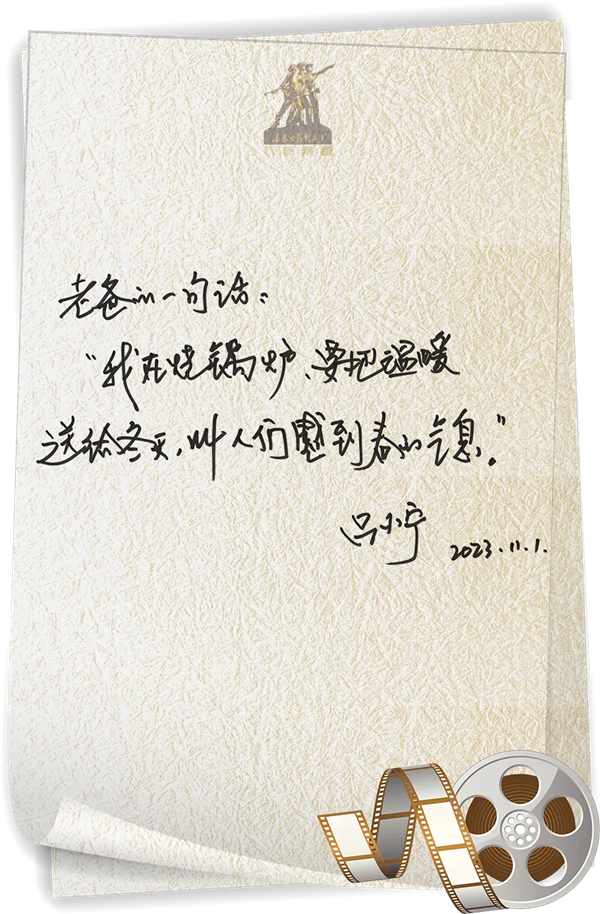 长春电影制片厂
老爸的一句话：
“我在烧锅炉、要把温暖
送给冬天，叫人们感到春的气息。”
吕小宁 2023.11.1.